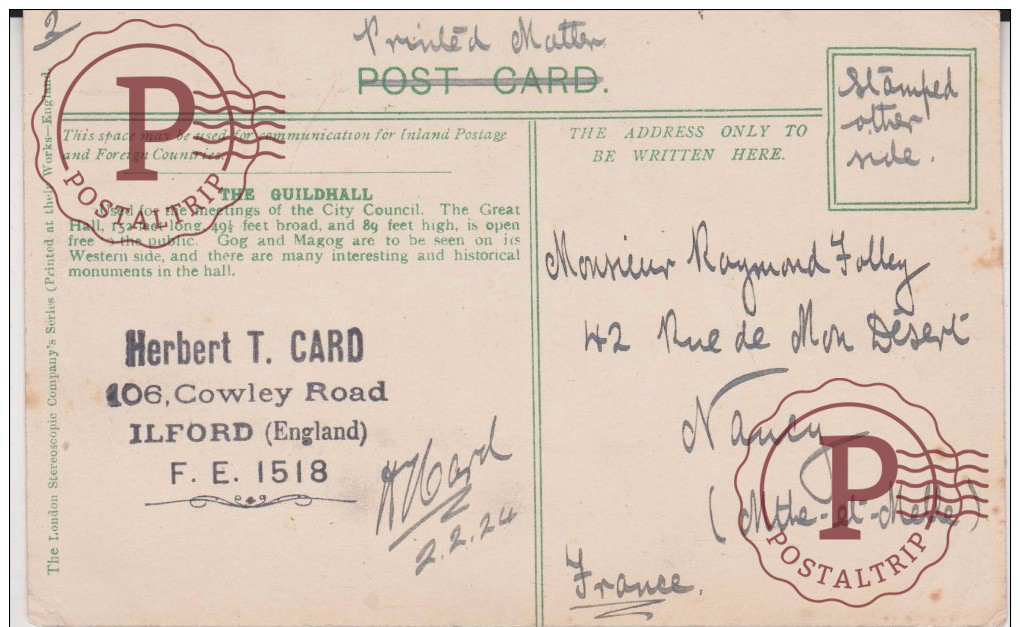 2
Printed Matter
POST CARD.
Stamped
other
side.
This space may be used for communication for Inland Postage
and Foreign Countries.
THE ADDRESS ONLY TO
BE WRITTEN HERE.
THE GUILDHALL
Used for the meetings of the City Council. The Great
Hall, 152 feet long, 49½ feet broad, and 89 feet high, is open
free to the public. Gog and Magog are to be seen on its
Western side, and there are many interesting and historical
monuments in the hall.
The London Stereoscopic Company's Series (Printed at their Works—England.
Herbert T. CARD
106, Cowley Road
ILFORD (England)
F. E. 1518
H Card
2.2.24
Monsieur Raymond Folley
42 Rue de Mon Désert
Nancy
(Mthe-et-Melle)
France.
P
POSTALTRIP
P
POSTALTRIP